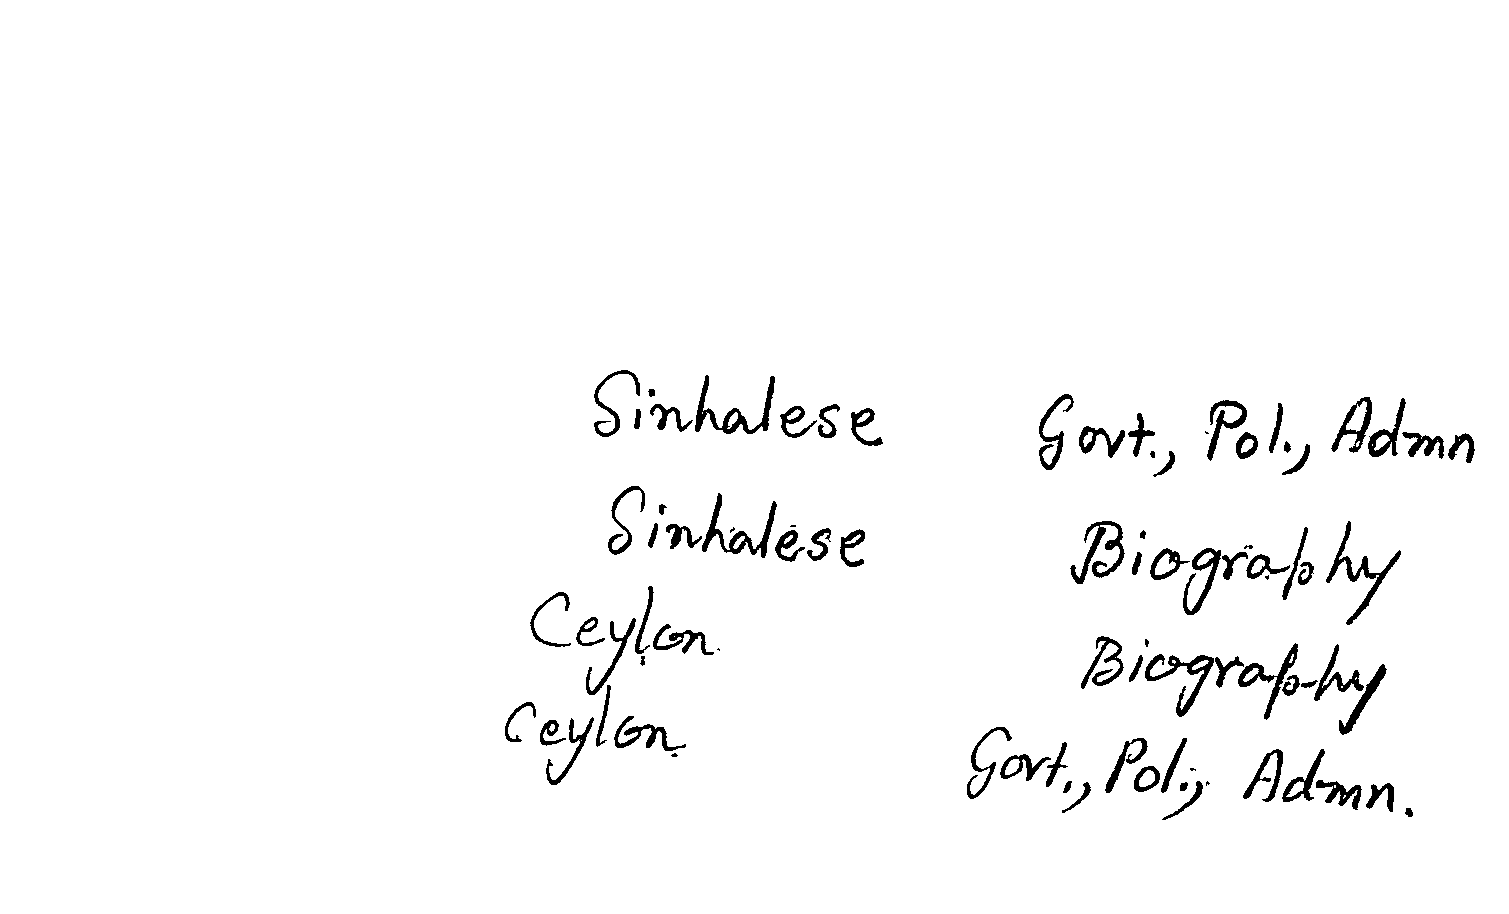 Sinhalese Govt., Pol., Admn
Sinhalese Biography
Ceylon Biography
Ceylon Govt., Pol., Admn.